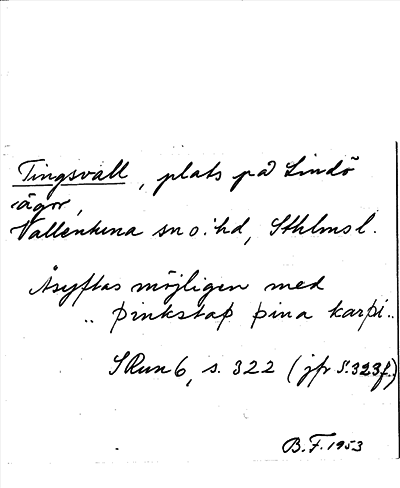 Tingsvall, plats på Lindö
ägor,
Vallentuna sn o. hd, Sthlms l.
Åsyftas möjligen med
.. þinkstaþ þina karþi ..
SRun 6, s. 322 (jfr s. 323 f.)
B. F. 1953